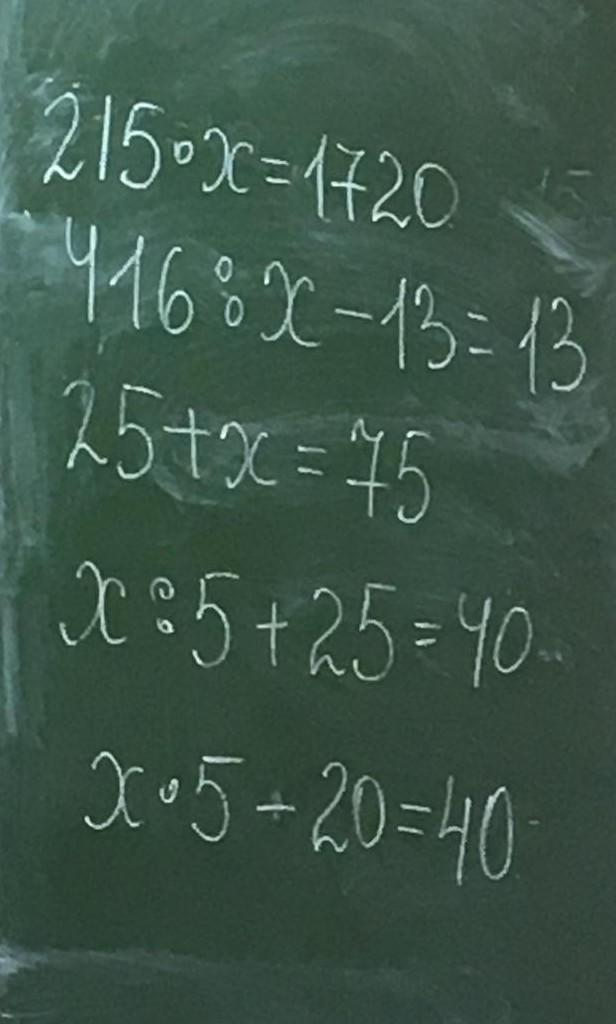 215·x=1720
416:x-13=13
25+x=75
x:5+25=40
x·5-20=40